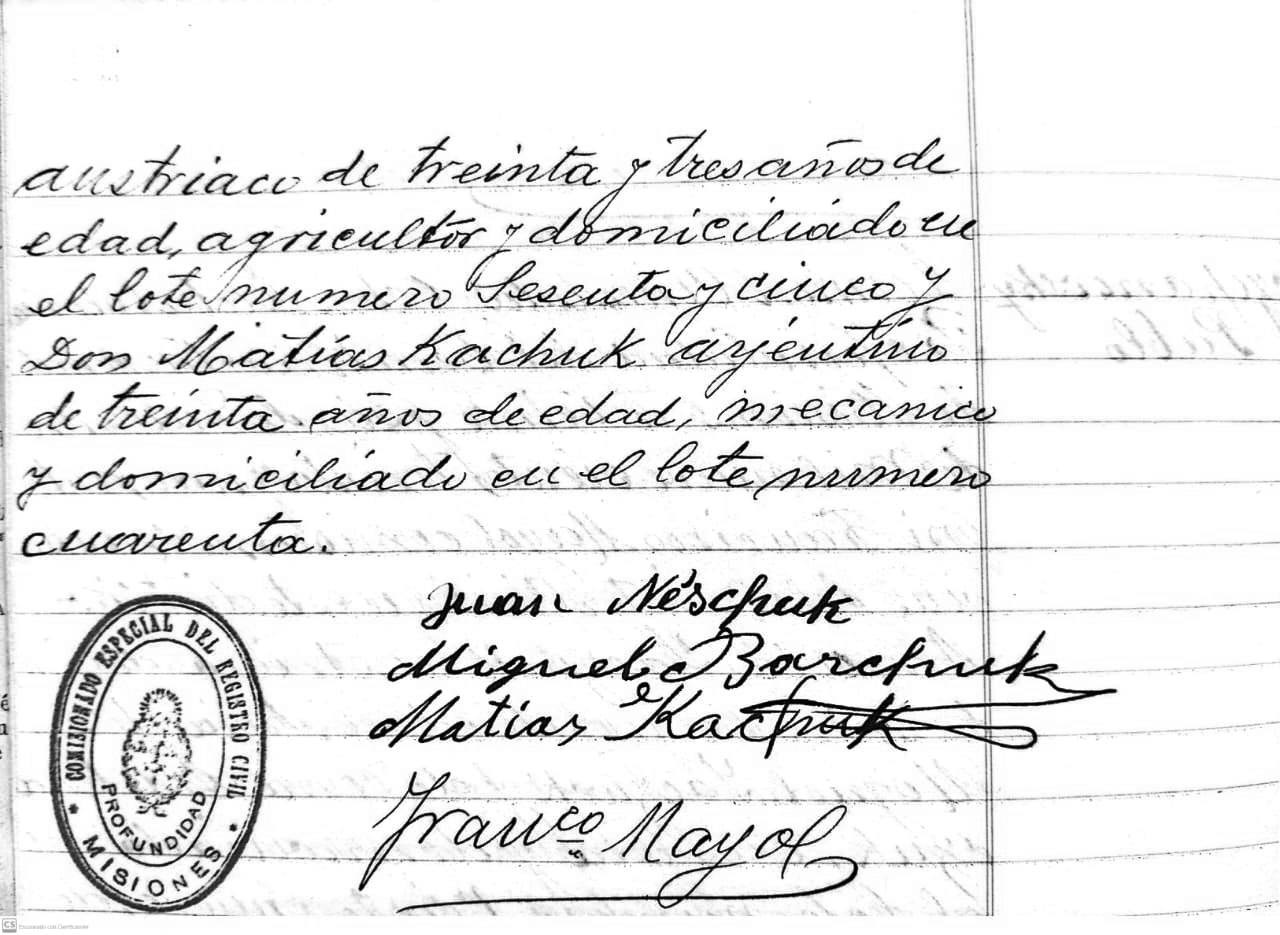 austriaco de treinta y tres años de
edad, agricultor y domiciliado en
el lote numero Sesenta y cinco y
Don Matías Kachuk arjentino
de treinta años de edad, mecanico
y domiciliado en el lote numero
cuarenta.
Juan Néschuk
Miguel Barchuk
Matias Kachuk
Franco Mayol
COMISIONADO ESPECIAL DEL REGISTRO CIVIL
PROFUNDIDAD
* MISIONES *
CS Escaneado con CamScanner